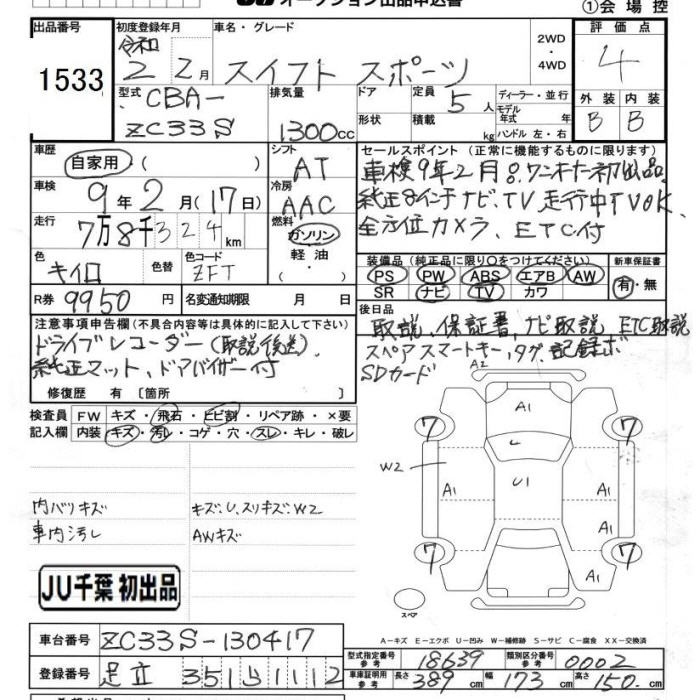 オークション出品申込書
①会場控
出品番号 1533
初度登録年月 令和 2 2月
車名・グレード スイフト スポーツ
2WD・4WD
評価点 4
外装 B 内装 B
型式 CBA-ZC33S
排気量 1300cc
ドア 形状
定員 5人
積載 kg
ディーラー・並行
モデル年式 年
ハンドル 左・右
車歴 自家用・( )
シフト AT
車検 9年2月(17日)
冷房 AAC
走行 7万8千324km
燃料 ガソリン 軽油・
色 キイロ
色替
色コード ZFT
R券 9950円
名変通知期限 月 日
セールスポイント(正常に機能するものに限ります)
車検9年2月。ワンオーナー初出品
純正8インチナビ、TV 走行中TVOK、
全方位カメラ、ETC付
装備品(純正品に限り○をつけてください)
PS PW ABS エアB AW
SR ナビ TV カワ
新車保証書 有・無
後日品
取説、保証書、ナビ取説、ETC取説
スペアスマートキー、タグ、記録ボ
SDカード
注意事項申告欄(不具合内容等は具体的に記入して下さい)
ドライブレコーダー(取説後送)、
純正マット、ドアバイザー付
修復歴 有〔箇所 〕
検査員記入欄
FW キズ・飛石・ヒビ割・リペア跡・×要
内装 キズ・汚レ・コゲ・穴・スレ・キレ・破レ
内バリキズ
車内汚し
キズ、U、スリキズ、W2
AWキズ
A2
A1
7 7
W2
U
U1
A1 A1
A1
7 7
スペア
JU千葉 初出品
A－キズ E－エクボ U－凹み W－補修跡 S－サビ C－腐食 XX－交換済
車台番号 ZC33S-130417
登録番号 足立 351
型式指定番号 参考 18639
類別区分番号 参考 0002
車庫証明用 参考 長さ 389cm 幅 173cm 高さ 150cm